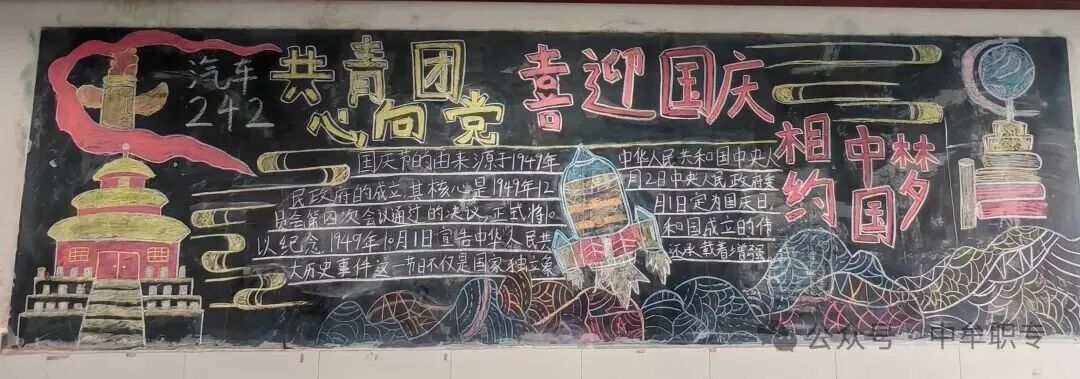 汽车
242
共青团
心向党
喜迎国庆
相约
中国梦
国庆节的由来源于1949年 中华人民共和国中央人
民政府的成立其核心是1949年12月2日中央人民政府委
员会第四次会议通过的决议,正式将10月1日定为国庆日
以纪念1949年10月1日宣告中华人民共和国成立的伟
大历史事件这一节日不仅是国家独立象 还承载着增强
公众号·中牟职专